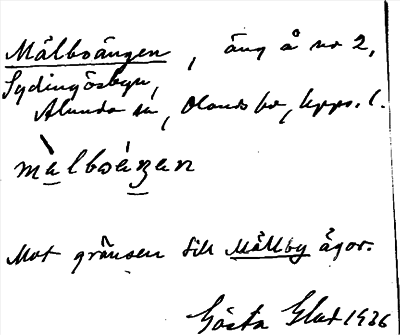 Målboängen, äng å no 2,
Sydingösbyn,
Alunda sn, Olands hd, Upps. l.
màlboáŋan
Mot gränsen till Mållby ägor.
Gösta 1936